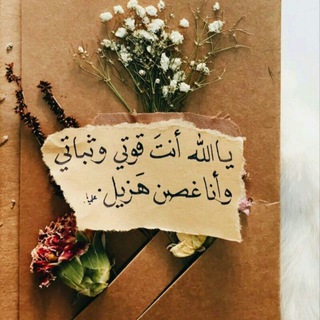 يا الله أنتَ قوتي وثباتي
وأنا غصن هَزيل.